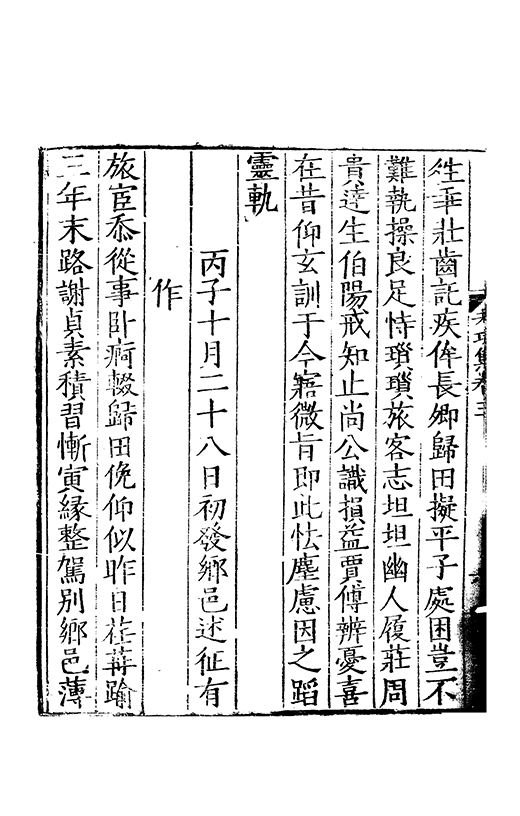 徃乖壯齒託疾侔長卿歸田擬平子處困豈不
難執操良足恃瑣瑣旅客志坦坦幽人履莊周
貴達生伯陽戒知止尚公識損益賈傅辨憂喜
在昔仰玄訓于今寤微旨即此怯塵慮因之蹈
靈軌
丙子十月二十八日初發鄉邑述征有
作
旅宦忝從事卧痾輟歸田俛仰似昨日荏苒踰
三年末路謝貞素積習慚寅緣整駕別鄉邑薄